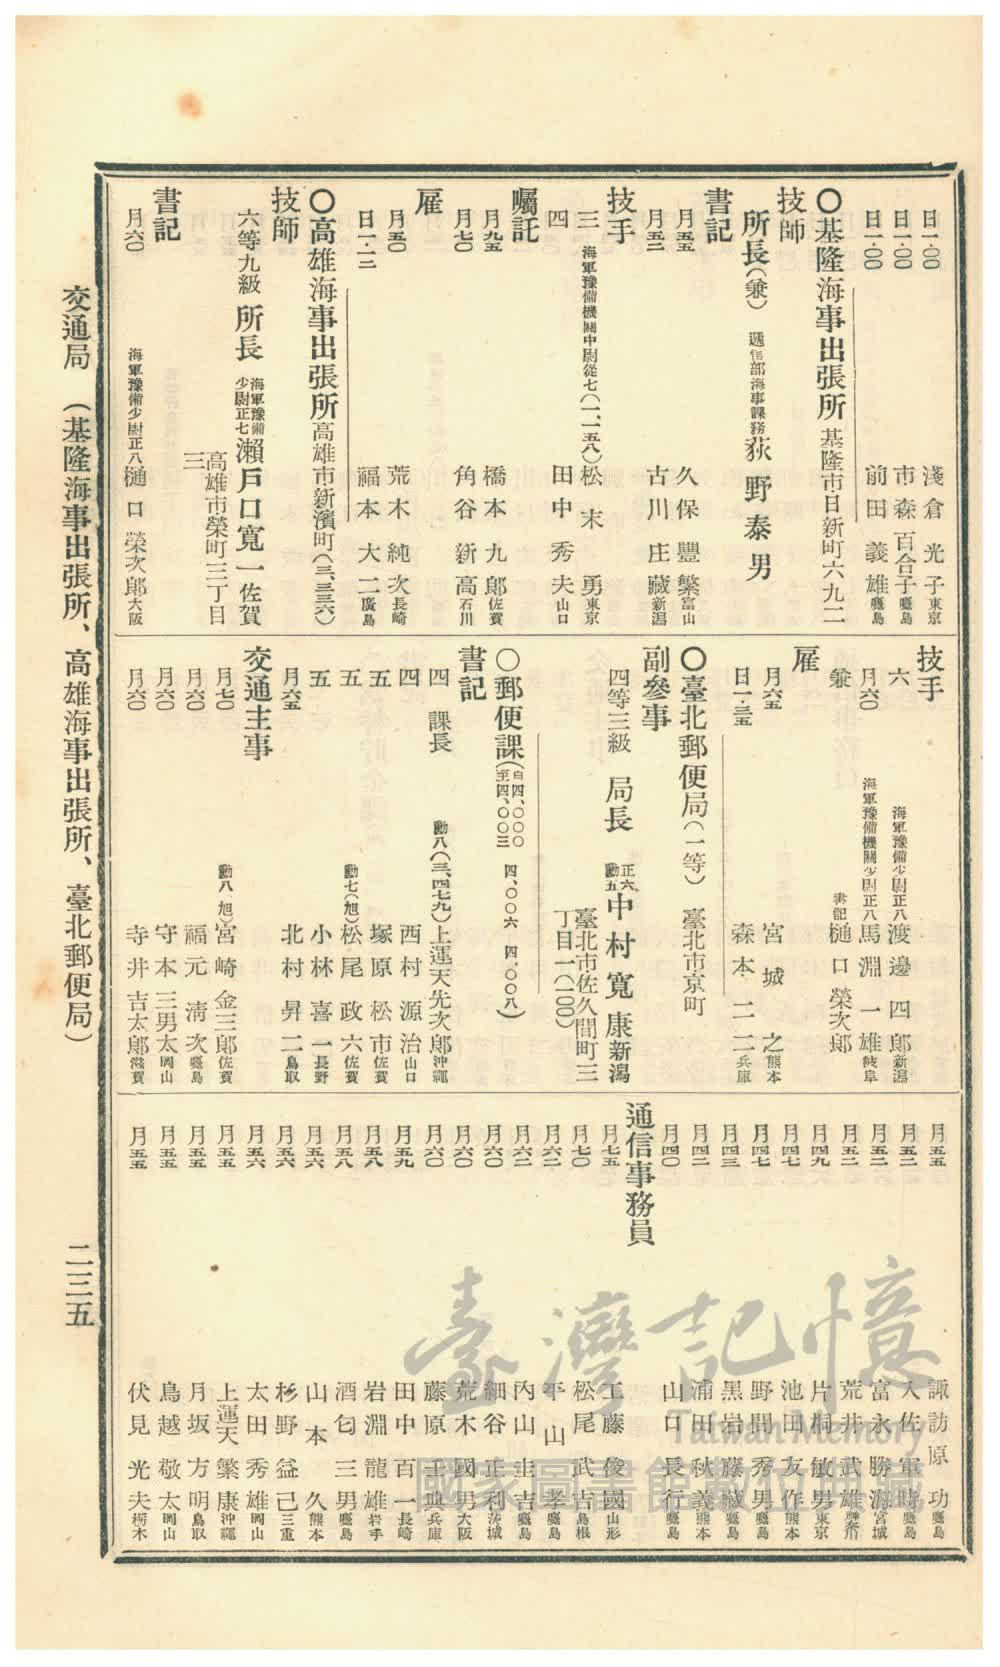 日一・〇〇 淺倉光子 東京
日一・〇〇 市森百合子 廳島
日一・〇〇 前田義雄 廳島
〇基隆海事出張所 基隆市日新町六九二
技師
所長(兼) 遞信部海事課務 荻野泰男
書記
月五五 久保豐繁 富山
月五二 古川庄藏 新潟
技手
三 海軍豫備機關中尉從七(一、一五八) 松末勇 東京
四 田中秀夫 山口
囑託
月九五 橋本九郎 佐賀
月七〇 角谷新高 石川
雇
月五〇 荒木純次 長崎
日一・一二 福本大二 廣島
〇高雄海事出張所 高雄市新濱町(三、三三六)
技師
六等九級 所長 海軍豫備少尉正七 瀨戶口寬一 佐賀
高雄市榮町三丁目
三
書記
月六〇 海軍豫備少尉正八 樋口榮次郎 大阪
技手
六 海軍豫備少尉正八 渡邊四郎 新潟
月六〇 海軍豫備機關少尉正八 馬淵一雄 岐阜
兼 書記 樋口榮次郎
雇
月六五 宮城之 熊本
日一・三五 森本二二 兵庫
〇臺北郵便局(一等) 臺北市京町
副參事
四等三級 局長 正六勳五 中村寬康 新潟
臺北市佐久間町三
丁目一(一〇〇)
〇郵便課(自四、〇〇〇至四、〇〇三 四、〇〇六 四、〇〇八)
書記
四 課長 勳八(三、四七九) 上運天先次郎 沖繩
四 西村源治 山口
五 塚原松市 佐賀
五 勳七(旭) 松尾政六 佐賀
五 小林喜一 長野
月六五 北村昇二 鳥取
交通主事
月七〇 勳八(旭) 宮崎金三郎 佐賀
月六〇 福元淸次 廳島
月六〇 守本三男太 岡山
月六〇 寺井吉太郎 滋賀
月五五 諏訪原功 廳島
月五二 入佐軍時 廳島
月五二 富永勝海 宮城
月五二 荒井武雄
月四九 片桐敏男 東京
月四七 池田友作 熊本
月四七 野間秀男 廳島
月四三 黑岩藤藏 廳島
月四二 浦田秋義 熊本
月四〇 山口長行 廳島
通信事務員
月七五 工藤俊國 山形
月七〇 松尾武吉 島根
月六二 平山孝 廳島
月六二 內山圭吉 廳島
月六〇 細谷正利 茨城
月六〇 荒木國男 大阪
月六〇 藤原正典 兵庫
月五九 田中百一 長崎
月五八 岩淵龍雄 岩手
月五八 酒匂三男 廳島
月五六 山本久 熊本
月五六 杉野益己 三重
月五六 太田秀雄 岡山
月五五 上運天繁康 沖繩
月五五 月坂方明 鳥取
月五五 鳥越敬太 岡山
月五五 伏見光夫 栃木
交通局 (基隆海事出張所、高雄海事出張所、臺北郵便局)
二三五
臺灣記憶
Taiwan Memory
國家圖書館數位典藏